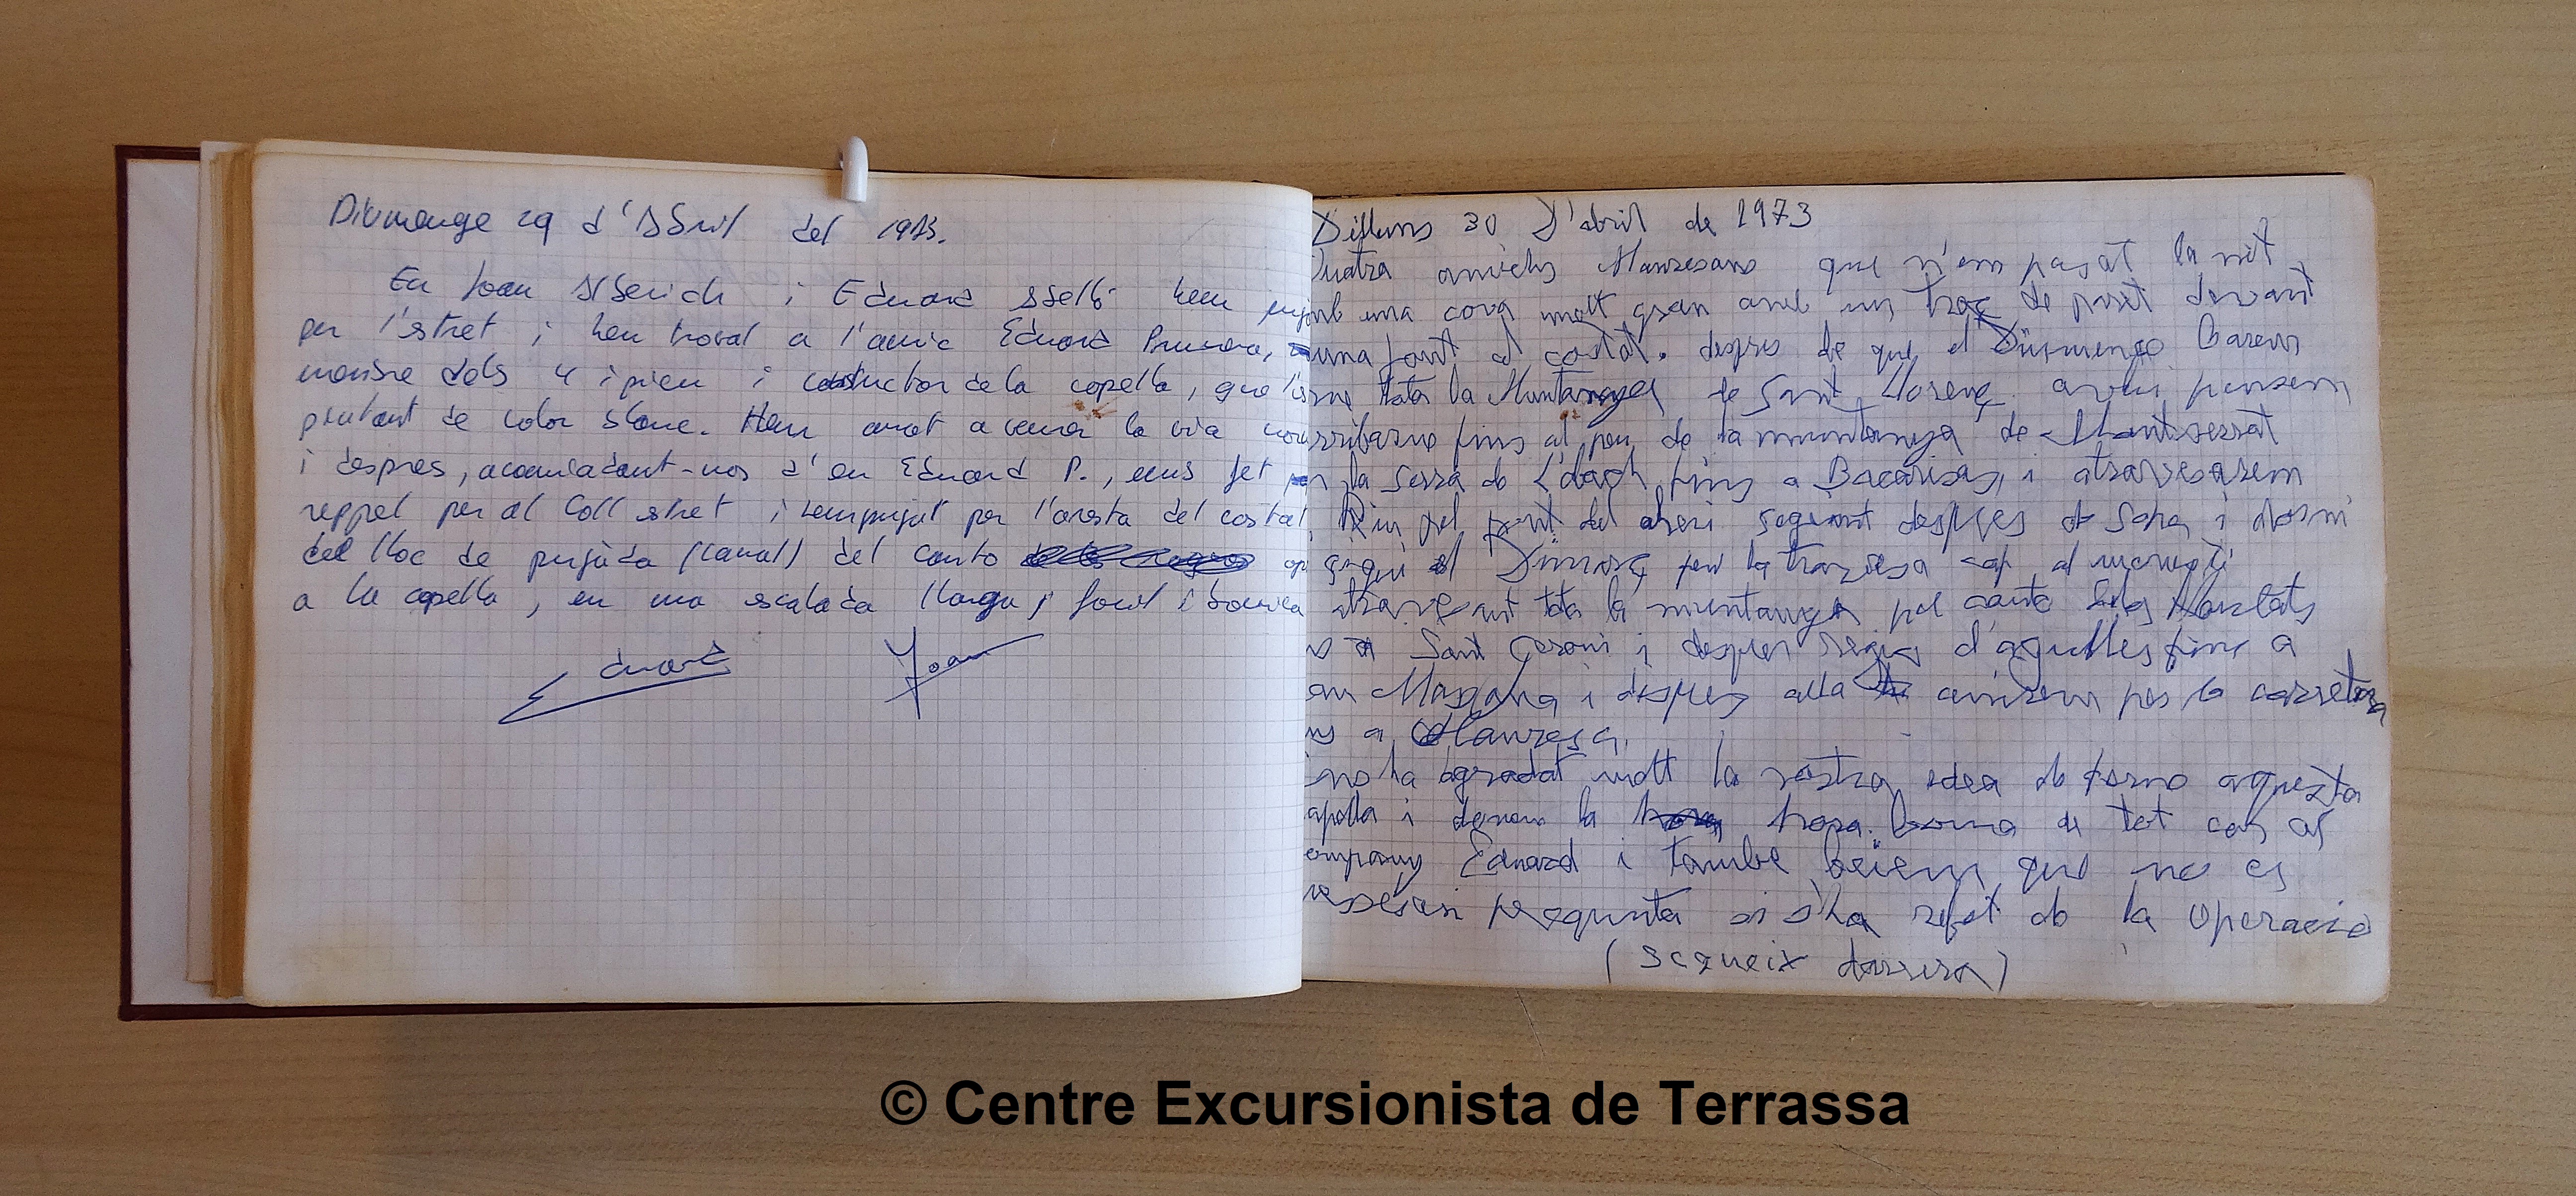 Diumenge 29 d'Abril del 1973.
En Joan Alberich i Eduard hem
per l'estret i hem trobat a l'amic Eduard
membre dels 4 i pico i constructor de la capella, que
pintant de color blanc. Hem anat a la via
i despres, acomiadant-nos d'en Eduard P., hem fet
reppel per el Coll estret i hem pujat per l'aresta del costat
del lloc de pujada (canal) del canto
a la capella, en una escalada llarga, facil i bonica
Eduard Joan
Dilluns 30 D'abril de 1973
Quatra amichs Manresans que n'em pasat la nit
amb una cova molt gran amb un troç de prat davant
i una font al costat. despres de que el Diumenge
tota la Muntanya de Sant Llorenç avui pensem
arribarne fins al peu de la muntanya de Montserrat
la serra de L'obach fins a Bacarisas, i atravesarem
Riu pel pont del seguint despres de Sopa i dormi
el Dimarç per la travesa cap al
atravesant tota la muntanya pel canto dels
a Sant Geroni i despres d'agulles fins a
Can Maçana i despres alla anirem per la carretera
fins a Manresa.
ens ha agradat molt la vostra idea de forno aquesta
capella i donem la hora bona de tot cor al
company Eduard i tambe beiem que no es
nesesari pregunta si s'ha refet de la operacio
(segueix darrera)
© Centre Excursionista de Terrassa